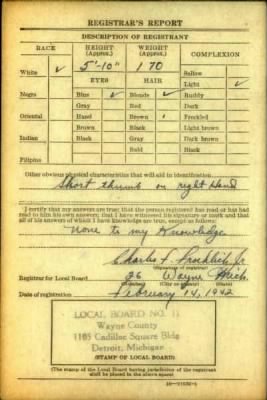 REGISTRAR'S REPORT
DESCRIPTION OF REGISTRANT
RACE HEIGHT (Approx.) WEIGHT (Approx.) COMPLEXION
White ✓ 5'-10" 170 Sallow
EYES HAIR Light ✓
Negro Blue ✓ Blonde ✓ Ruddy
Gray Red Dark
Oriental Hazel Brown Freckled
Brown Black Light brown
Indian Black Gray Dark brown
Bald Black
Filipino
Other obvious physical characteristics that will aid in identification
Short thumb on right hand
I certify that my answers are true; that the person registered has read or has had
read to him his own answers; that I have witnessed his signature or mark and that
all of his answers of which I have knowledge are true, except as follows:
None to my Knowledge
Charles F. Jr.
(Signature of registrar)
Registrar for Local Board 26 Wayne Mich.
(Number) (City or county) (State)
Date of registration February 14, 1942
LOCAL BOARD NO. 11
Wayne County
1105 Cadillac Square Bldg
Detroit, Michigan
(STAMP OF LOCAL BOARD)
(The stamp of the Local Board having jurisdiction of the registrant
shall be placed in the above space)